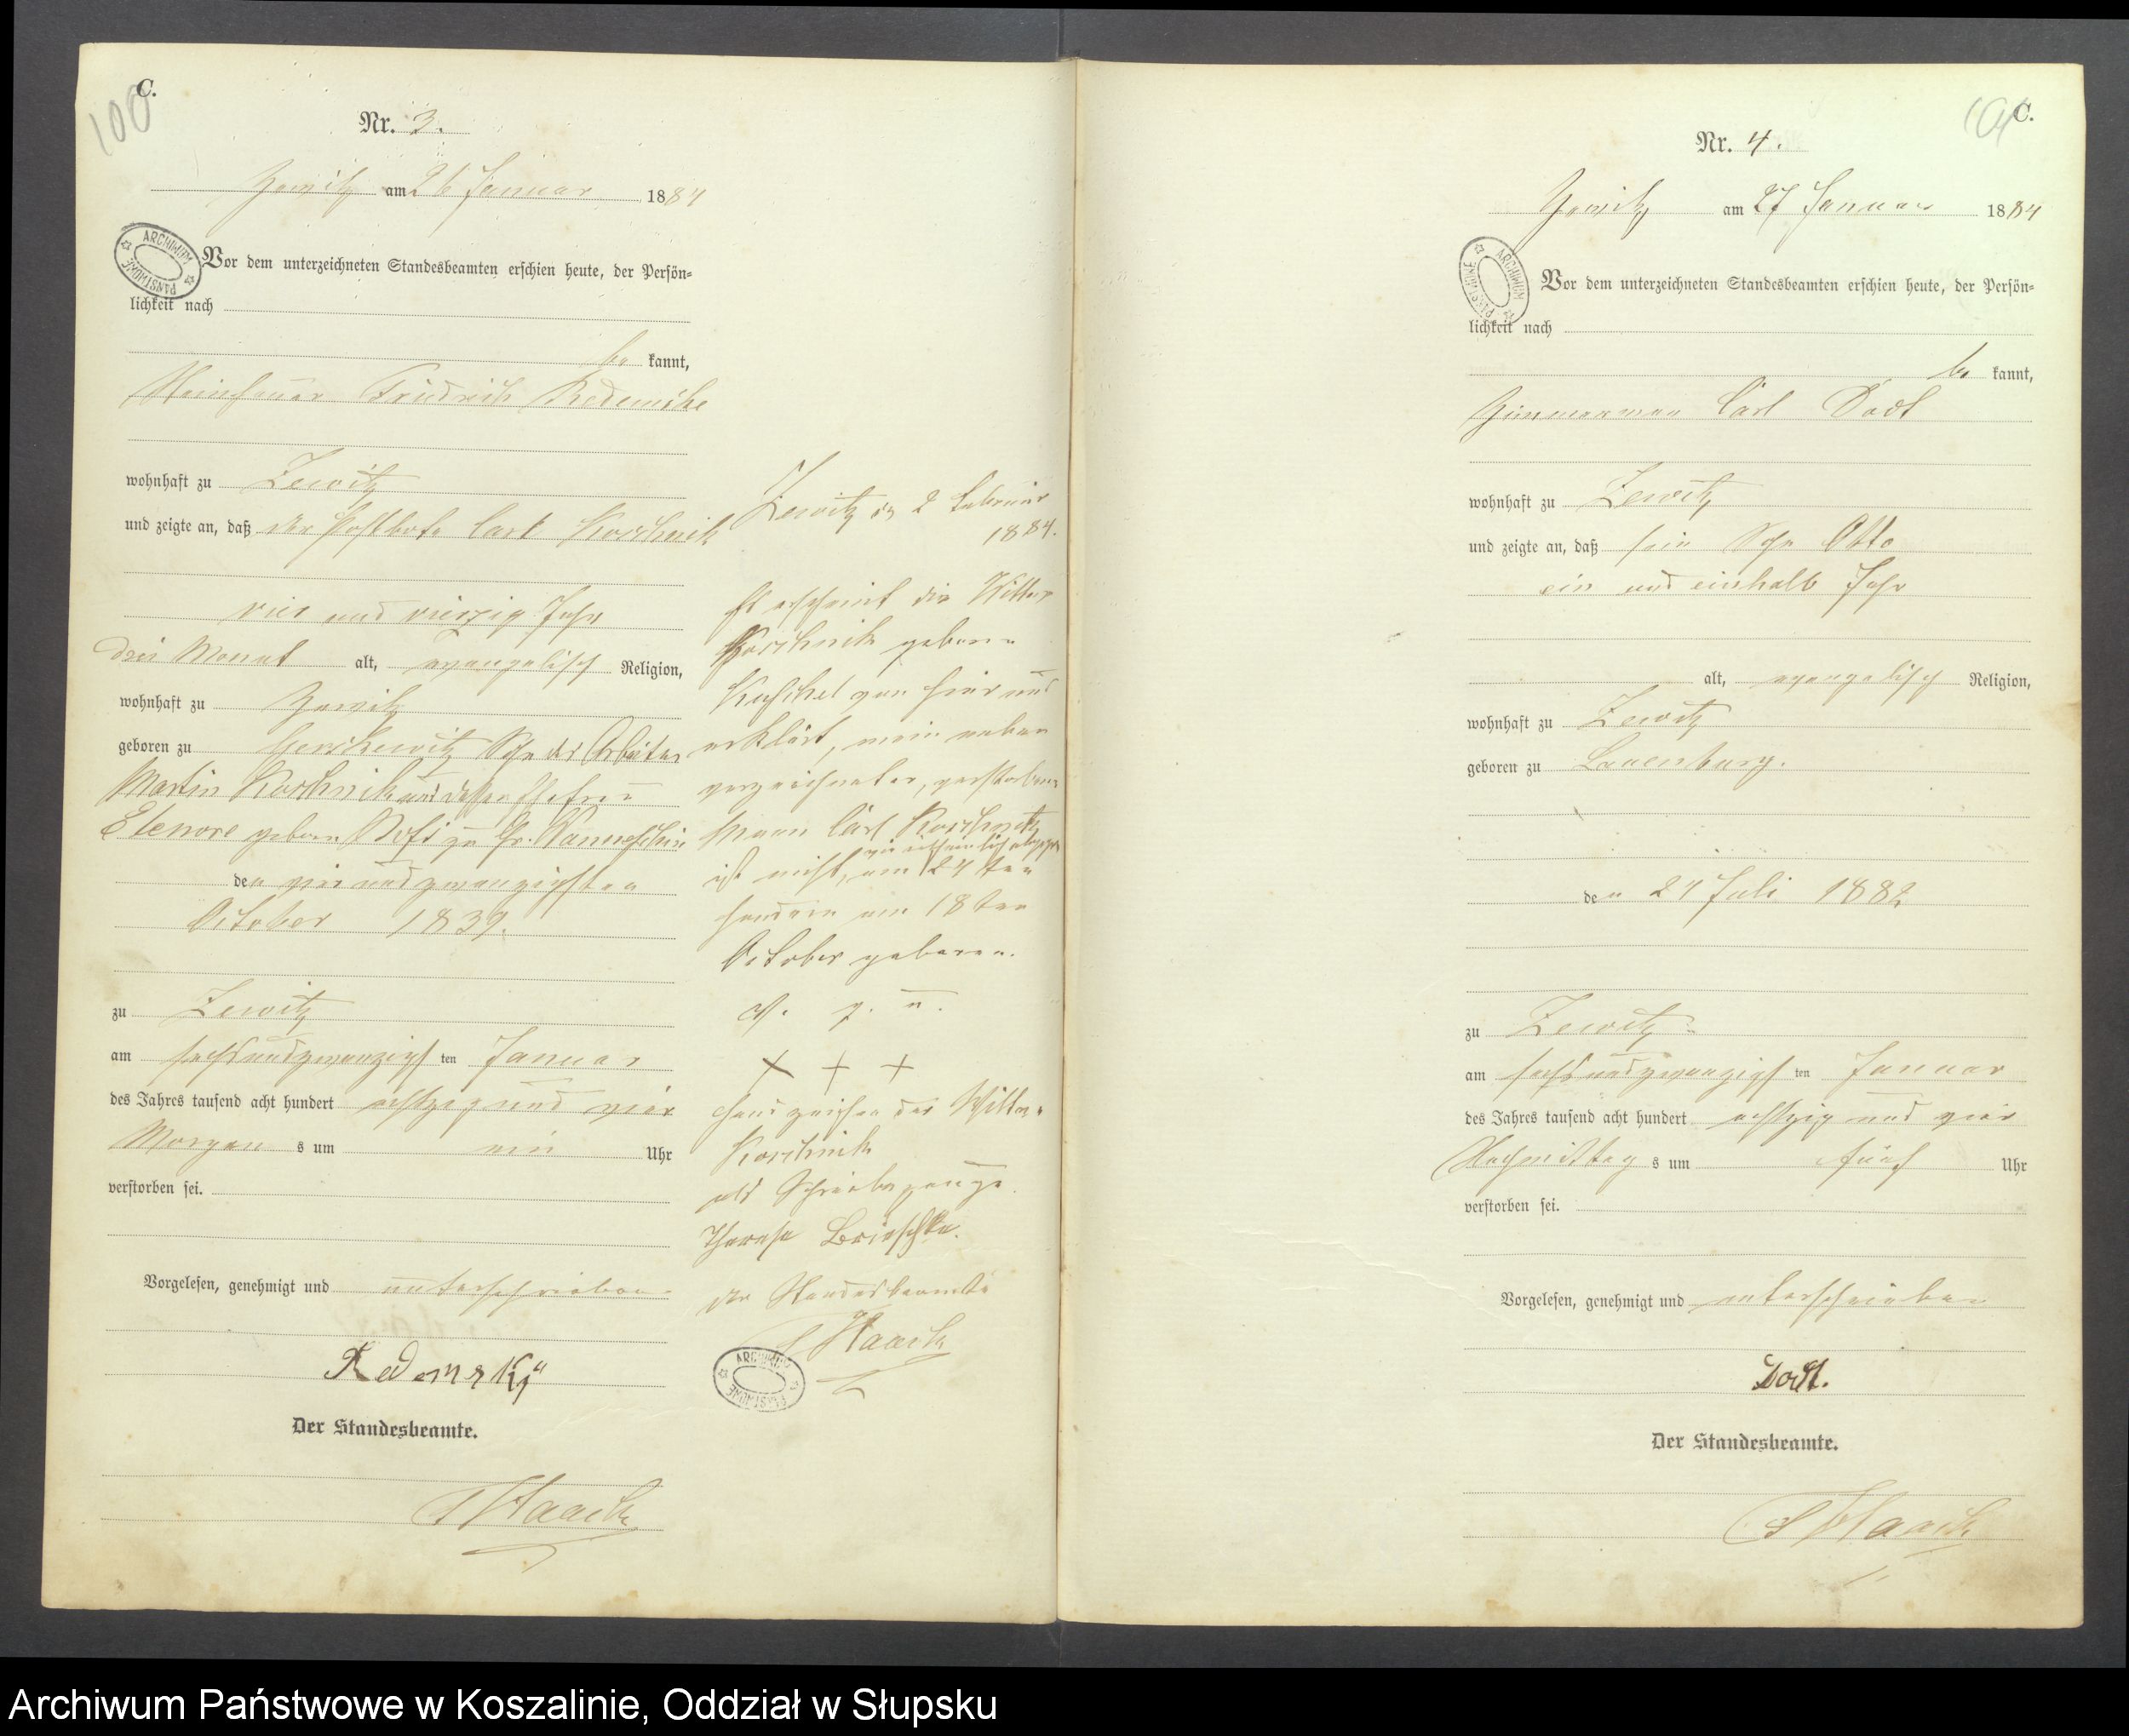 100
C.
Nr. 3.
Zewitz am 26 Januar 1884
ARCHIWUM PAŃSTWOWE
Vor dem unterzeichneten Standesbeamten erschien heute, der Persön-
lichkeit nach
be kannt,
Friedrich
wohnhaft zu Zewitz
und zeigte an, daß der Postbote Carl Koschnik
vier und vierzig Jahr
drei Monat alt, evangelisch Religion,
wohnhaft zu Zewitz
geboren zu Sohn des Arbeiter
Martin Koschnik und dessen Ehefrau
Elenore geborne zu Gr.
den vier und zwanzigsten
October 1839.
zu Zewitz
am sechsundzwanzigsten Januar
des Jahres tausend acht hundert achtzig und vier
Morgen s um ein Uhr
verstorben sei.
Vorgelesen, genehmigt und unterschrieben
Der Standesbeamte.
Haack
Zewitz den 2 Februar
1884.
Es erscheint die Witwe
Koschnik geborne
von hier und
erklärt, mein neben
verzeichneter, verstorbener
Mann Carl
ist nicht, am 24 ten
sondern am 18 ten
October geboren.
v. g. u.
+ + +
Handzeichen der Witwe
Koschnik
als Schreibezeuge
Therese
der Standesbeamte
Haack
ARCHIWUM PAŃSTWOWE
101
C.
Nr. 4.
Zewitz am 27 Januar 1884
ARCHIWUM PAŃSTWOWE
Vor dem unterzeichneten Standesbeamten erschien heute, der Persön-
lichkeit nach
be kannt,
Zimmermann Carl
wohnhaft zu Zewitz
und zeigte an, daß sein Sohn Otto
ein und einhalb Jahr
alt, evangelisch Religion,
wohnhaft zu Zewitz
geboren zu Lauenburg.
den 21 Juli 1882
zu Zewitz
am sechsundzwanzigsten Januar
des Jahres tausend acht hundert achtzig und vier
Nachmittag s um fünf Uhr
verstorben sei.
Vorgelesen, genehmigt und unterschrieben
Der Standesbeamte.
Haack
Archiwum Państwowe w Koszalinie, Oddział w Słupsku